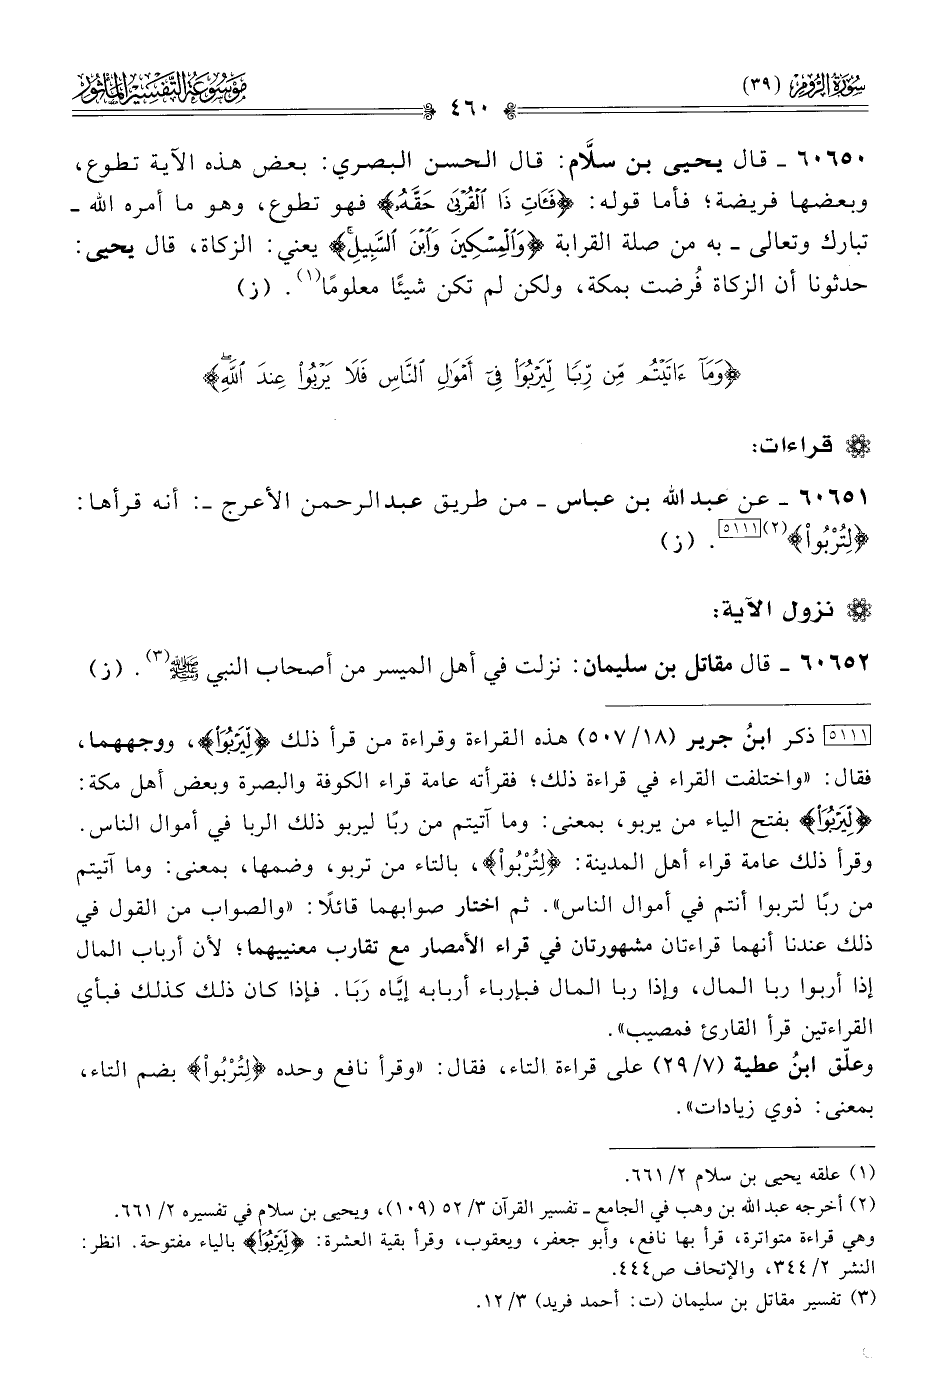 سُورَةُ الرُّومِ (٣٩)
مَوْسُوعَةُ التَّفْسِيرِ المَأْثُورِ
٤٦٠
٦٠٦٥٠ ـ قال يحيى بن سلَّام: قال الحسن البصري: بعض هذه الآية تطوع،
وبعضها فريضة؛ فأما قوله: ﴿فَـَٔاتِ ذَا ٱلْقُرْبَىٰ حَقَّهُۥ﴾ فهو تطوع، وهو ما أمره الله ـ
تبارك وتعالى ـ به من صلة القرابة ﴿وَٱلْمِسْكِينَ وَٱبْنَ ٱلسَّبِيلِۚ﴾ يعني: الزكاة، قال يحيى:
حدثونا أن الزكاة فُرضت بمكة، ولكن لم تكن شيئًا معلومًا(١). (ز)
﴿وَمَآ ءَاتَيْتُم مِّن رِّبًا لِّيَرْبُوَا۟ فِىٓ أَمْوَٰلِ ٱلنَّاسِ فَلَا يَرْبُوا۟ عِندَ ٱللَّهِۖ﴾
قراءات:
٦٠٦٥١ ـ عن عبد الله بن عباس ـ من طريق عبد الرحمن الأعرج ـ: أنه قرأها:
﴿لِتُرْبُوا۟﴾(٢)[٥١١١]. (ز)
نزول الآية:
٦٠٦٥٢ ـ قال مقاتل بن سليمان: نزلت في أهل الميسر من أصحاب النبي ﷺ(٣). (ز)
[٥١١١] ذكر ابنُ جرير (١٨/ ٥٠٧) هذه القراءة وقراءة من قرأ ذلك ﴿لِّيَرْبُوَا۟﴾، ووجههما،
فقال: «واختلفت القراء في قراءة ذلك؛ فقرأته عامة قراء الكوفة والبصرة وبعض أهل مكة:
﴿لِّيَرْبُوَا۟﴾ بفتح الياء من يربو، بمعنى: وما آتيتم من ربًا ليربو ذلك الربا في أموال الناس.
وقرأ ذلك عامة قراء أهل المدينة: ﴿لِتُرْبُوا۟﴾، بالتاء من تربو، وضمها، بمعنى: وما آتيتم
من ربًا لتربوا أنتم في أموال الناس». ثم اختار صوابهما قائلًا: «والصواب من القول في
ذلك عندنا أنهما قراءتان مشهورتان في قراء الأمصار مع تقارب معنييهما؛ لأن أرباب المال
إذا أربوا ربا المال، وإذا ربا المال فبإرباء أربابه إيَّاه رَبَا. فإذا كان ذلك كذلك فبأي
القراءتين قرأ القارئ فمصيب».
وعلّق ابنُ عطية (٧/ ٢٩) على قراءة التاء، فقال: «وقرأ نافع وحده ﴿لِتُرْبُوا۟﴾ بضم التاء،
بمعنى: ذوي زيادات».
(١) علقه يحيى بن سلام ٢/ ٦٦١.
(٢) أخرجه عبد الله بن وهب في الجامع ـ تفسير القرآن ٣/ ٥٢ (١٠٩)، ويحيى بن سلام في تفسيره ٢/ ٦٦١.
وهي قراءة متواترة، قرأ بها نافع، وأبو جعفر، ويعقوب، وقرأ بقية العشرة: ﴿لِّيَرْبُوَا۟﴾ بالياء مفتوحة. انظر:
النشر ٢/ ٣٤٤، والإتحاف ص٤٤٤.
(٣) تفسير مقاتل بن سليمان (ت: أحمد فريد) ٣/ ١٢.